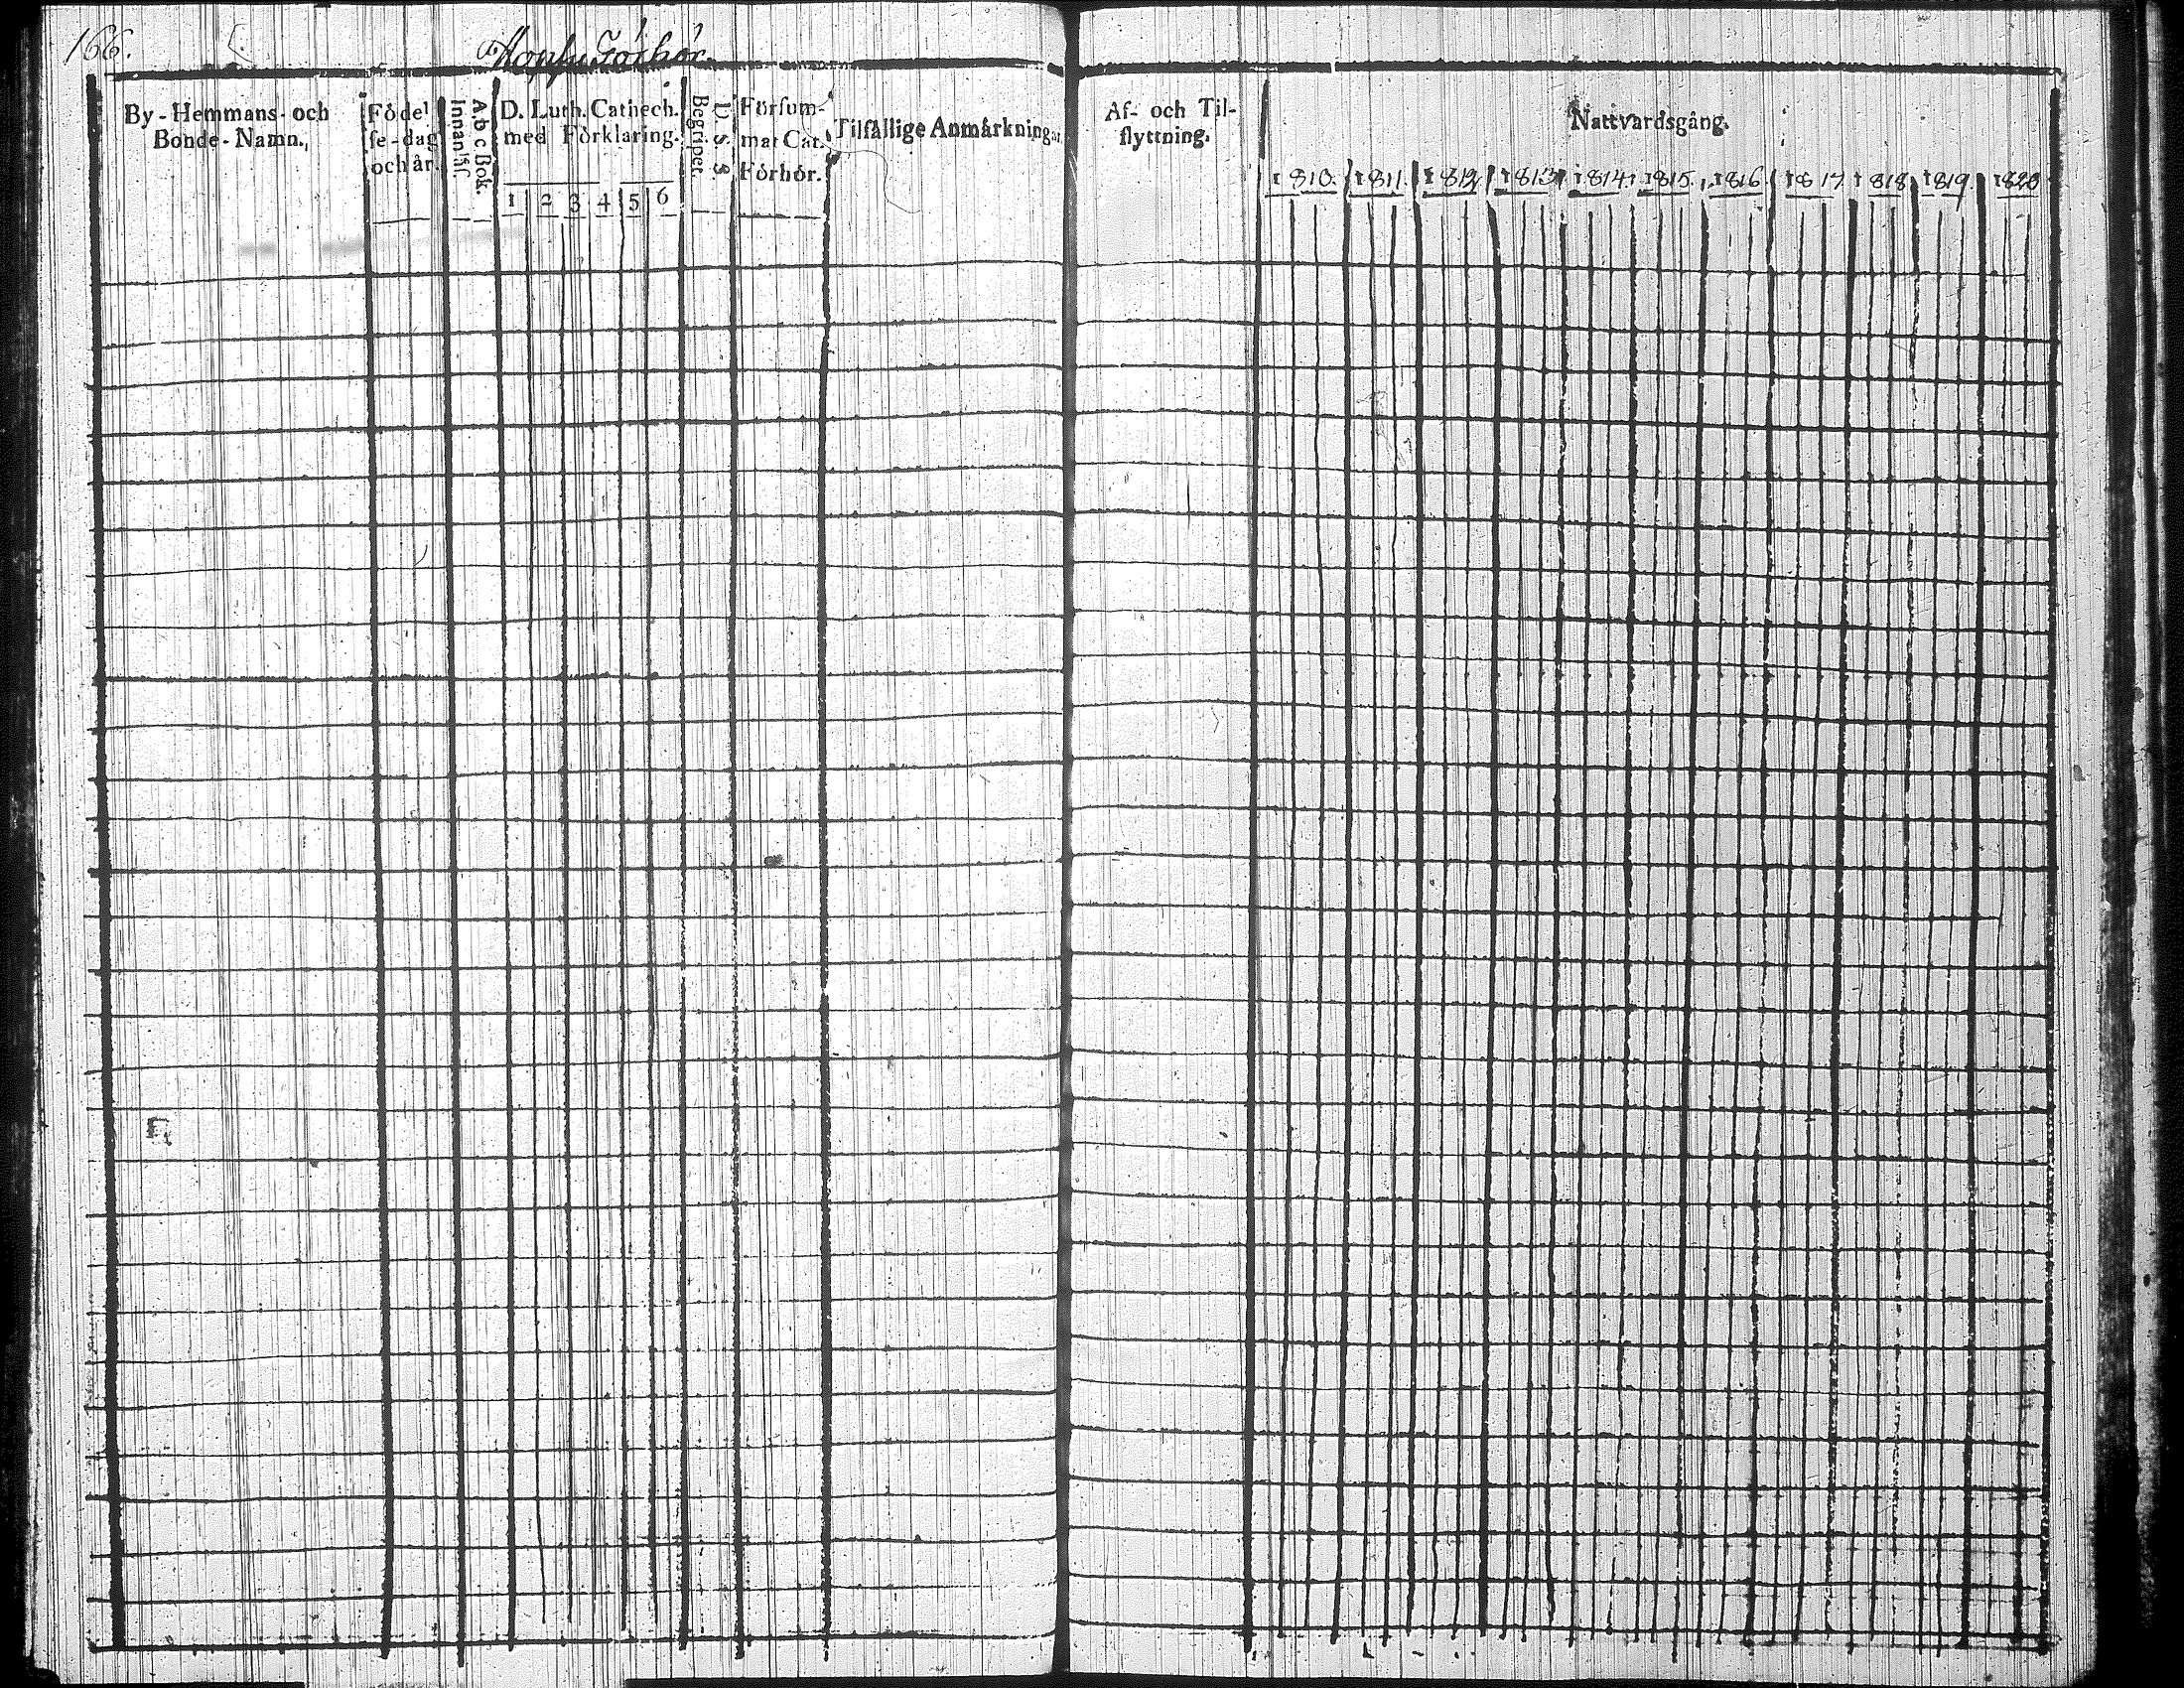 166.
By-Hemmans- och
Bonde-Namn.
Födel
se-dag
och år.
Innanläs.
A.b.c Bok.
D. Luth. Cathech.
med Förklaring.
1 2 3 4 5 6
Begriper.
Försum-
mat Cat.
Förhör.
Tilfällige Anmärkningar
Af- och Til-
flyttning.
Nattvardsgång.
1810. 1811. 1812 1813 1814. 1815. 1816. 1817 1818 1819. 1820